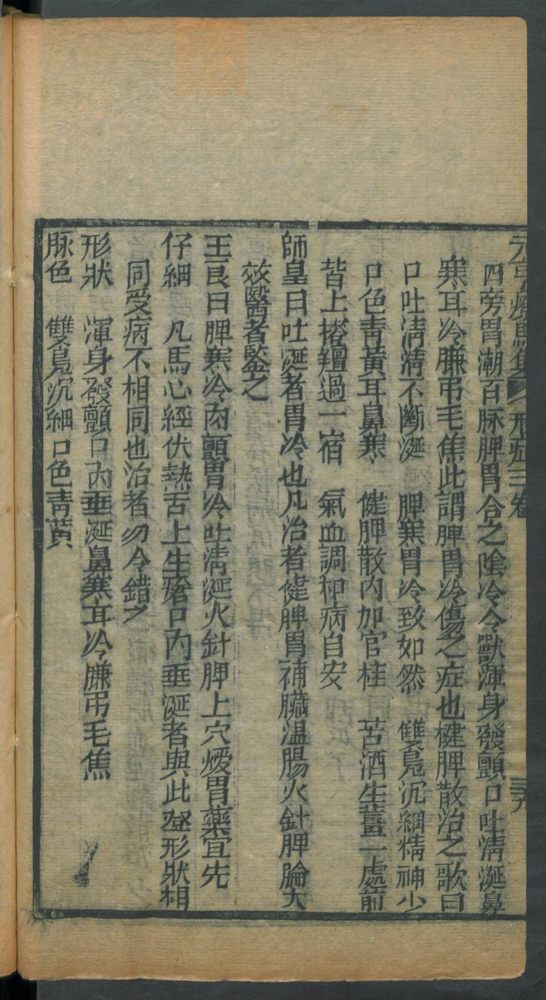 元亨療馬集 形症三卷 三九
四旁胃潮百脉脾胃合之陰冷令獸渾身發顫口吐清涎鼻
寒耳冷膁吊毛焦此謂脾胃冷傷之症也健脾散治之歌曰
口吐清清不斷涎 脾寒胃冷致如然 雙鳬沉細精神少
口色青黃耳鼻寒 健脾散內加官桂 苦酒生薑一處煎
背上搭氊過一宿 氣血調和病自安
師皇曰吐涎者胃冷也凡治者健脾胃補臟温腸火針脾腧大
效醫者鑒之
王良曰脾寒冷肉顫胃冷吐清涎火針脾上穴煖胃藥宜先
仔細 凡馬心經伏熱舌上生瘡口內垂涎者與此症形狀相
同受病不相同也治者勿令錯之
形狀 渾身發顫口內垂涎鼻寒耳冷膁吊毛焦
脉色 雙鳬沉細口色青黃